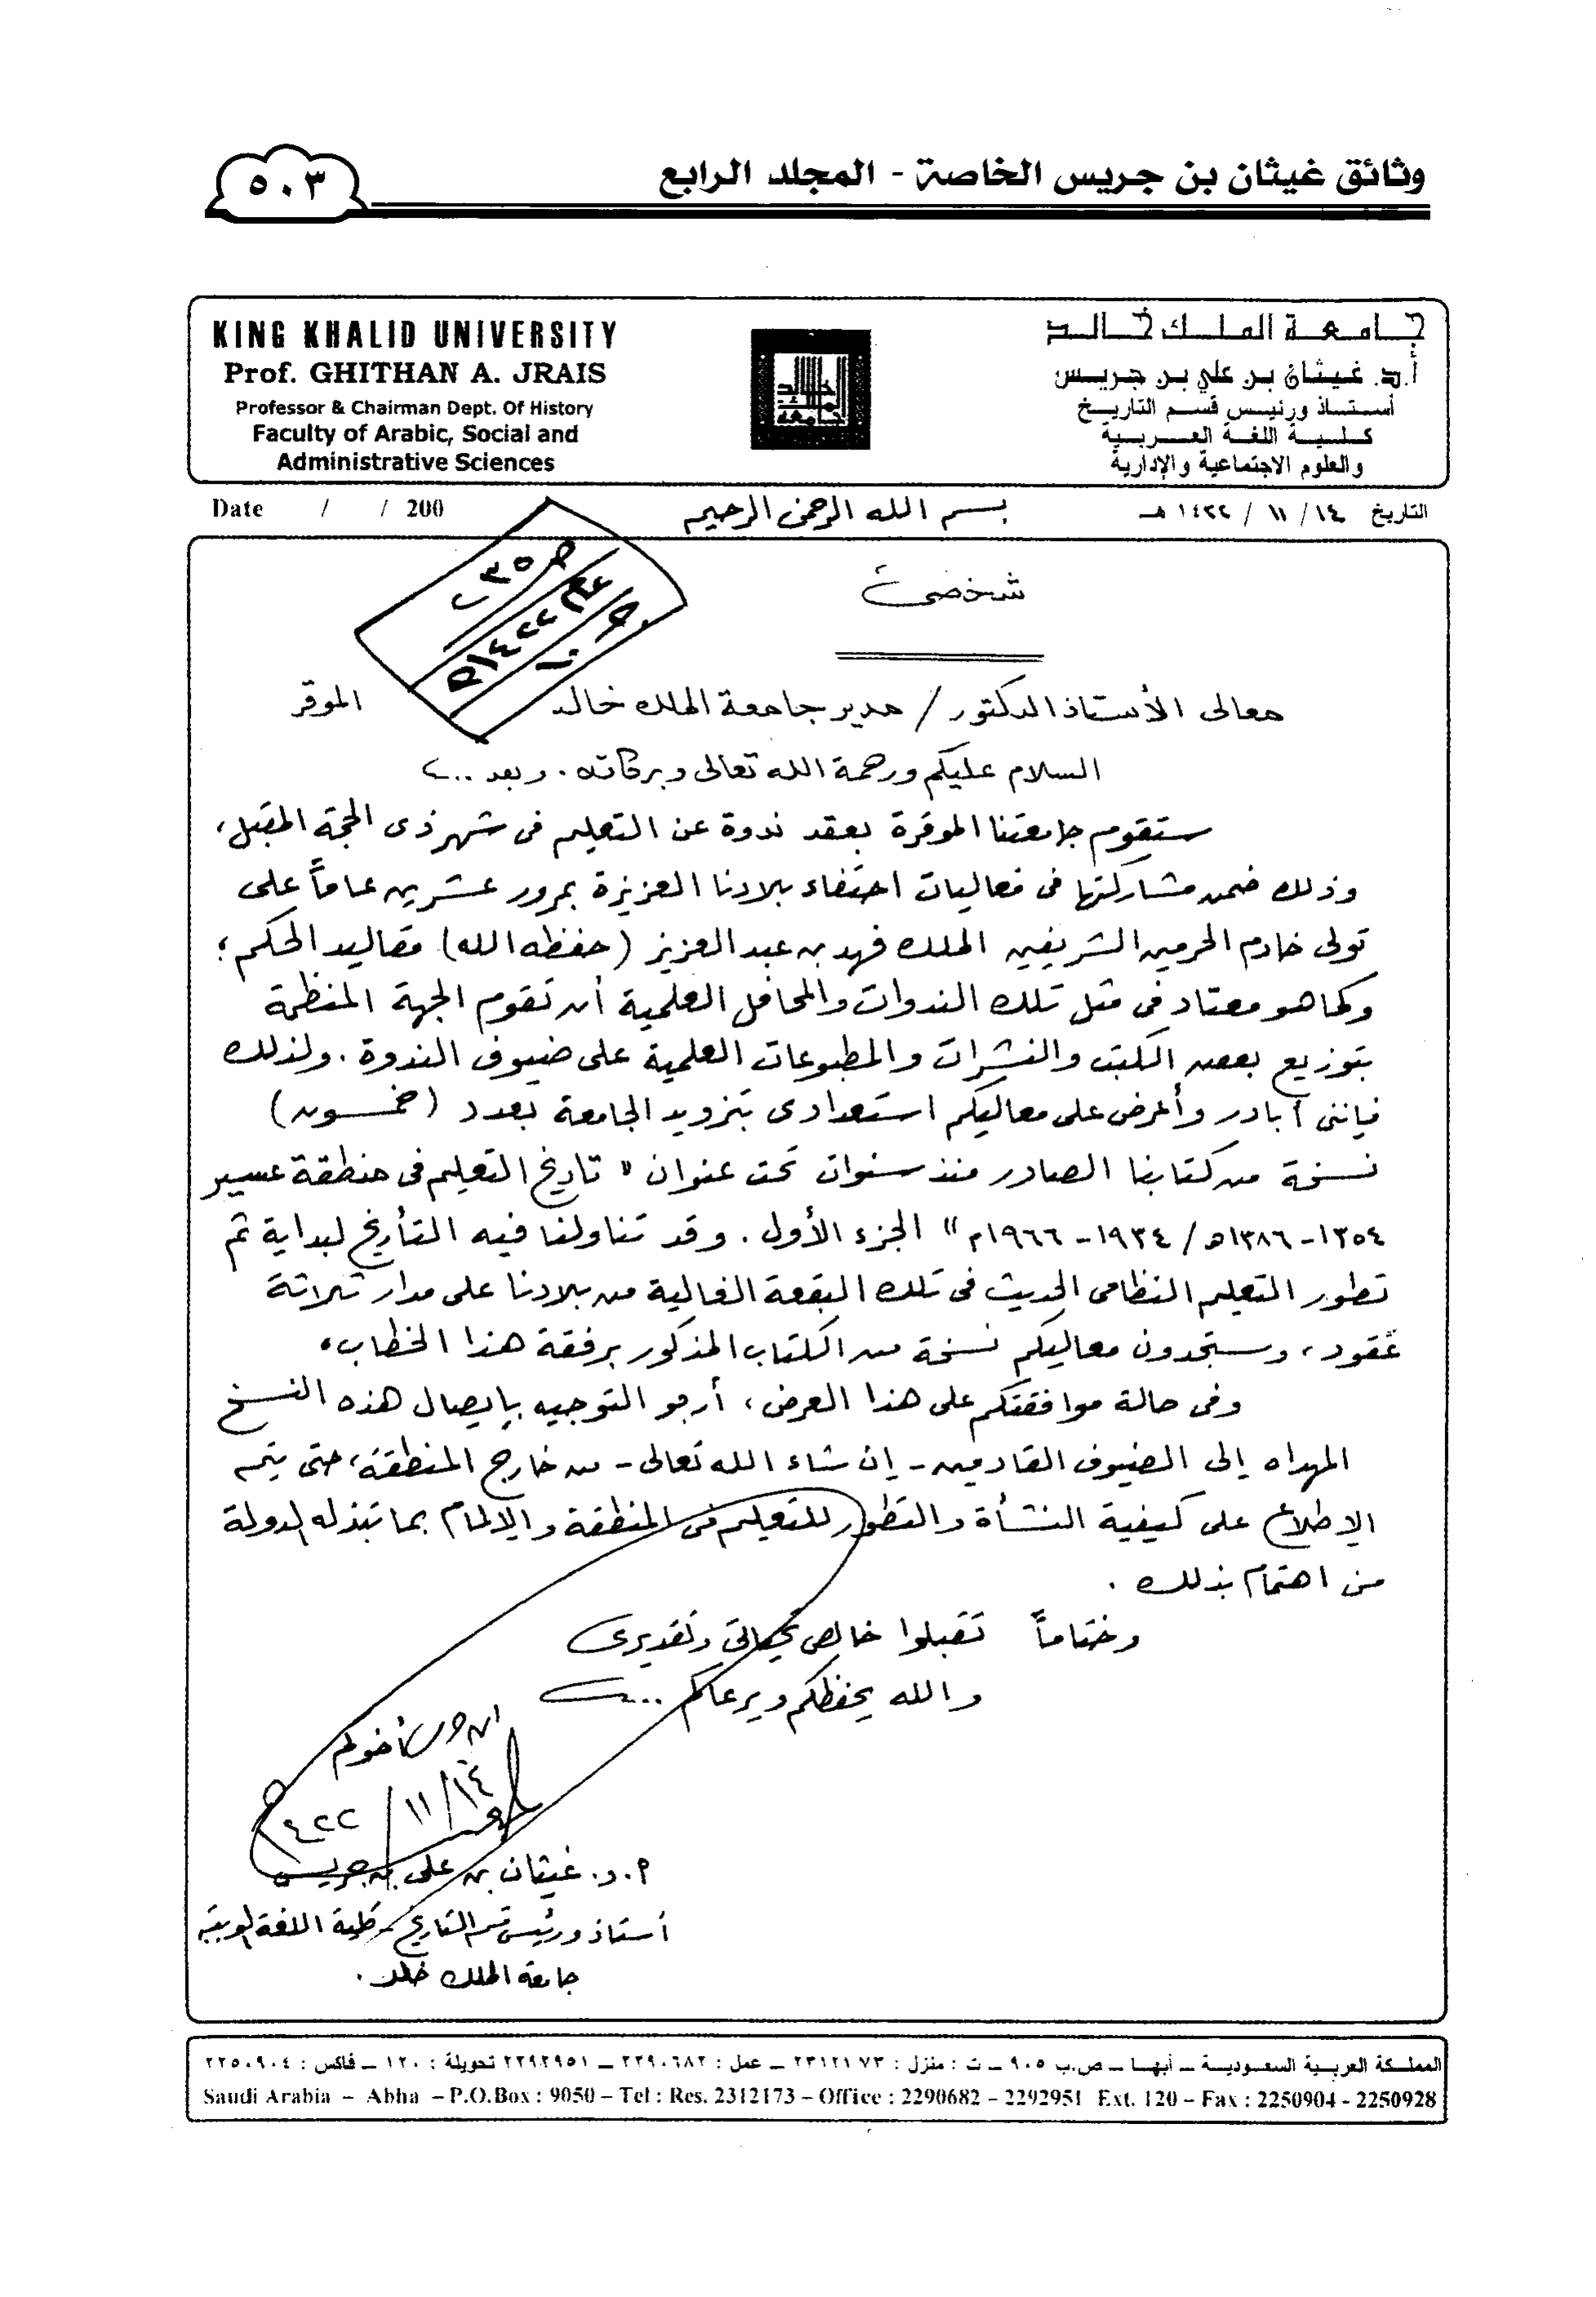 وثائق غيثان بن جريس الخاصة - المجلد الرابع
٥٠٣
جامعة الملك خالد
أ.د. غيثان بن علي بن جريس
أستاذ ورئيس قسم التاريخ
كلية اللغة العربية
والعلوم الاجتماعية والإدارية
KING KHALID UNIVERSITY
Prof. GHITHAN A. JRAIS
Professor & Chairman Dept. Of History
Faculty of Arabic, Social and
Administrative Sciences
التاريخ ١٤ / ١١ / ١٤٢٢ هـ
بسم الله الرحمن الرحيم
Date / / 200
شخصي
معالي الأستاذ الدكتور / مدير جامعة الملك خالد الموقر
السلام عليكم ورحمة الله تعالى وبركاته . وبعد ..
ستقوم جامعتنا الموقرة بعقد ندوة عن التعليم في شهر ذي الحجة المقبل ،
وذلك ضمن مشاركتها في فعاليات احتفاء بلادنا العزيزة بمرور عشرين عاماً على
تولي خادم الحرمين الشريفين الملك فهد بن عبد العزيز (حفظه الله) مقاليد الحكم ؛
وكما هو معتاد في مثل تلك الندوات والمحافل العلمية أن تقوم الجهة المنظمة
بتوزيع بعض الكتب والنشرات والمطبوعات العلمية على ضيوف الندوة . ولذلك
فإنني أبادر وأعرض على معاليكم استعدادي بتزويد الجامعة بعدد (خمسون)
نسخة من كتابنا الصادر منذ سنوات تحت عنوان " تاريخ التعليم في منطقة عسير
١٣٥٤ - ١٣٨٦هـ / ١٩٣٤ - ١٩٦٦م " الجزء الأول . وقد تناولنا فيه التأريخ لبداية ثم
تطور التعليم النظامي الحديث في تلك البقعة الغالية من بلادنا على مدار ثلاثة
عقود ، وستجدون معاليكم نسخة من الكتاب المذكور برفقة هذا الخطاب .
وفي حالة موافقتكم على هذا العرض ، أرجو التوجيه بإيصال هذه النسخ
المهداه إلى الضيوف القادمين - إن شاء الله تعالى - من خارج المنطقة ، حتى يتم
الإطلاع على كيفية النشأة والتطور للتعليم في المنطقة والإلمام بما تبذله الدولة
من اهتمام بذلك .
وختاماً تقبلوا خالص تحياتي وتقديري
والله يحفظكم ويرعاكم ...
أخوكم
١٤ / ١١ / ١٤٢٢
أ.د. غيثان بن علي بن جريس
أستاذ ورئيس قسم التاريخ كلية اللغة العربية
جامعة الملك خالد .
المملكة العربية السعودية – أبها – ص.ب ٩٠٥ – ت : منزل : ٢٣١٢١٧٣ – عمل : ٢٢٩٠٦٨٢ – ٢٢٩٢٩٥١ تحويلة : ١٢٠ – فاكس : ٢٢٥٠٩٠٤
Saudi Arabia – Abha – P.O.Box : 9050 – Tel : Res. 2312173 – Office : 2290682 – 2292951 Ext. 120 – Fax : 2250904 - 2250928